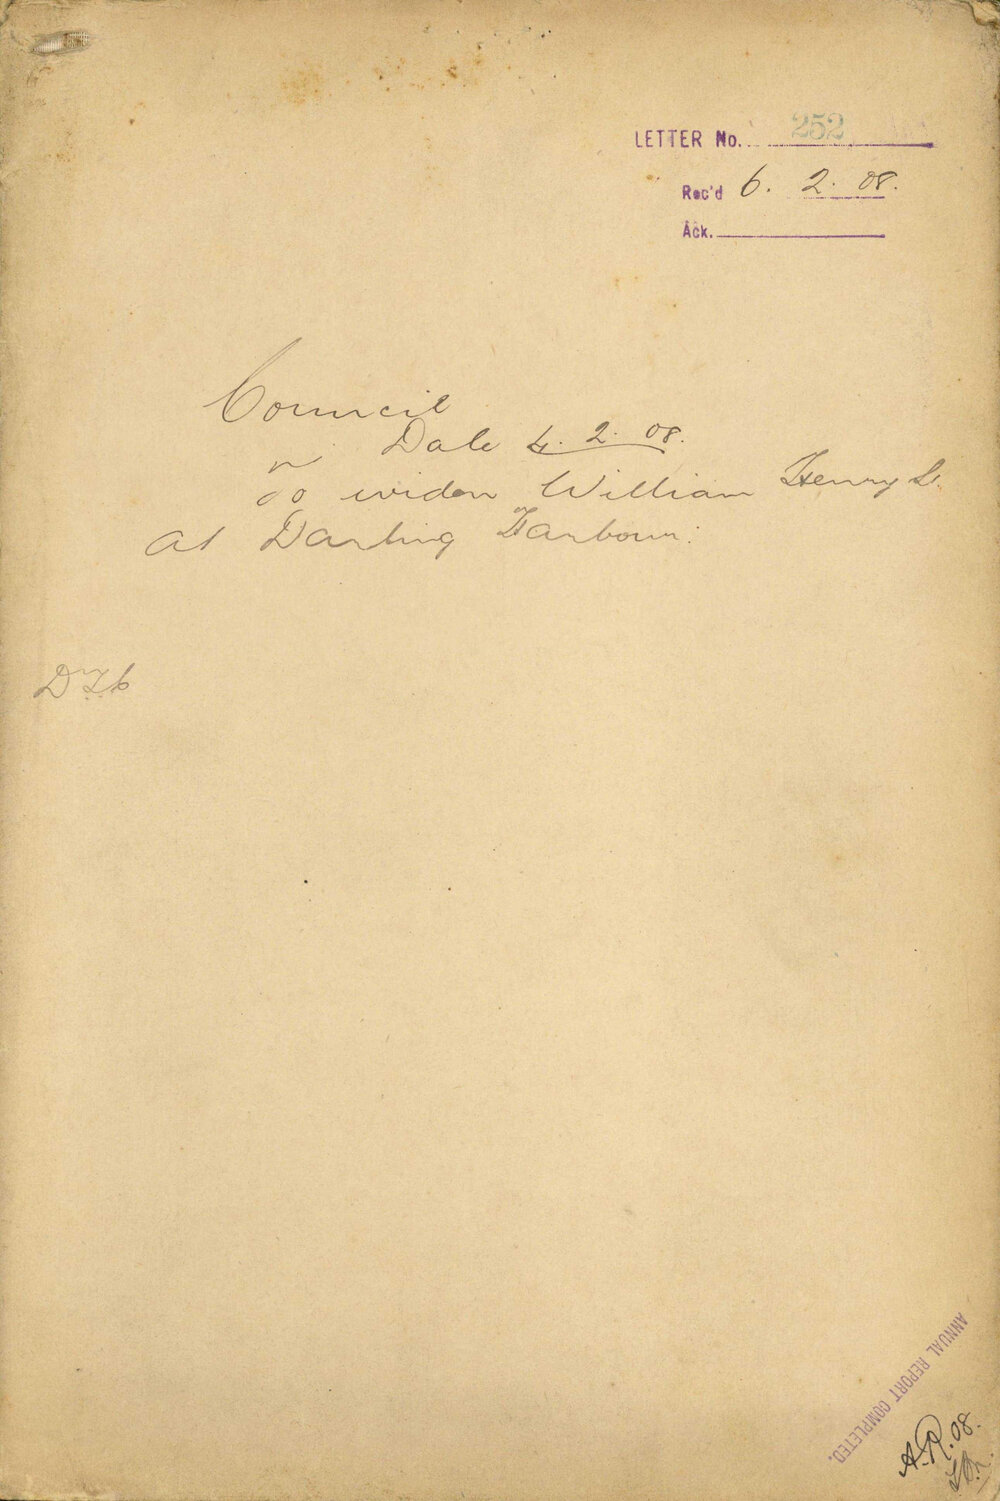 LETTER No. 252
Rec'd 6. 2. 08.
Ack.
Council
Date 4. 2. 08.
To widen William Henry St
at Darling Harbour.
ANNUAL REPORT COMPLETED.
A.R. 08.